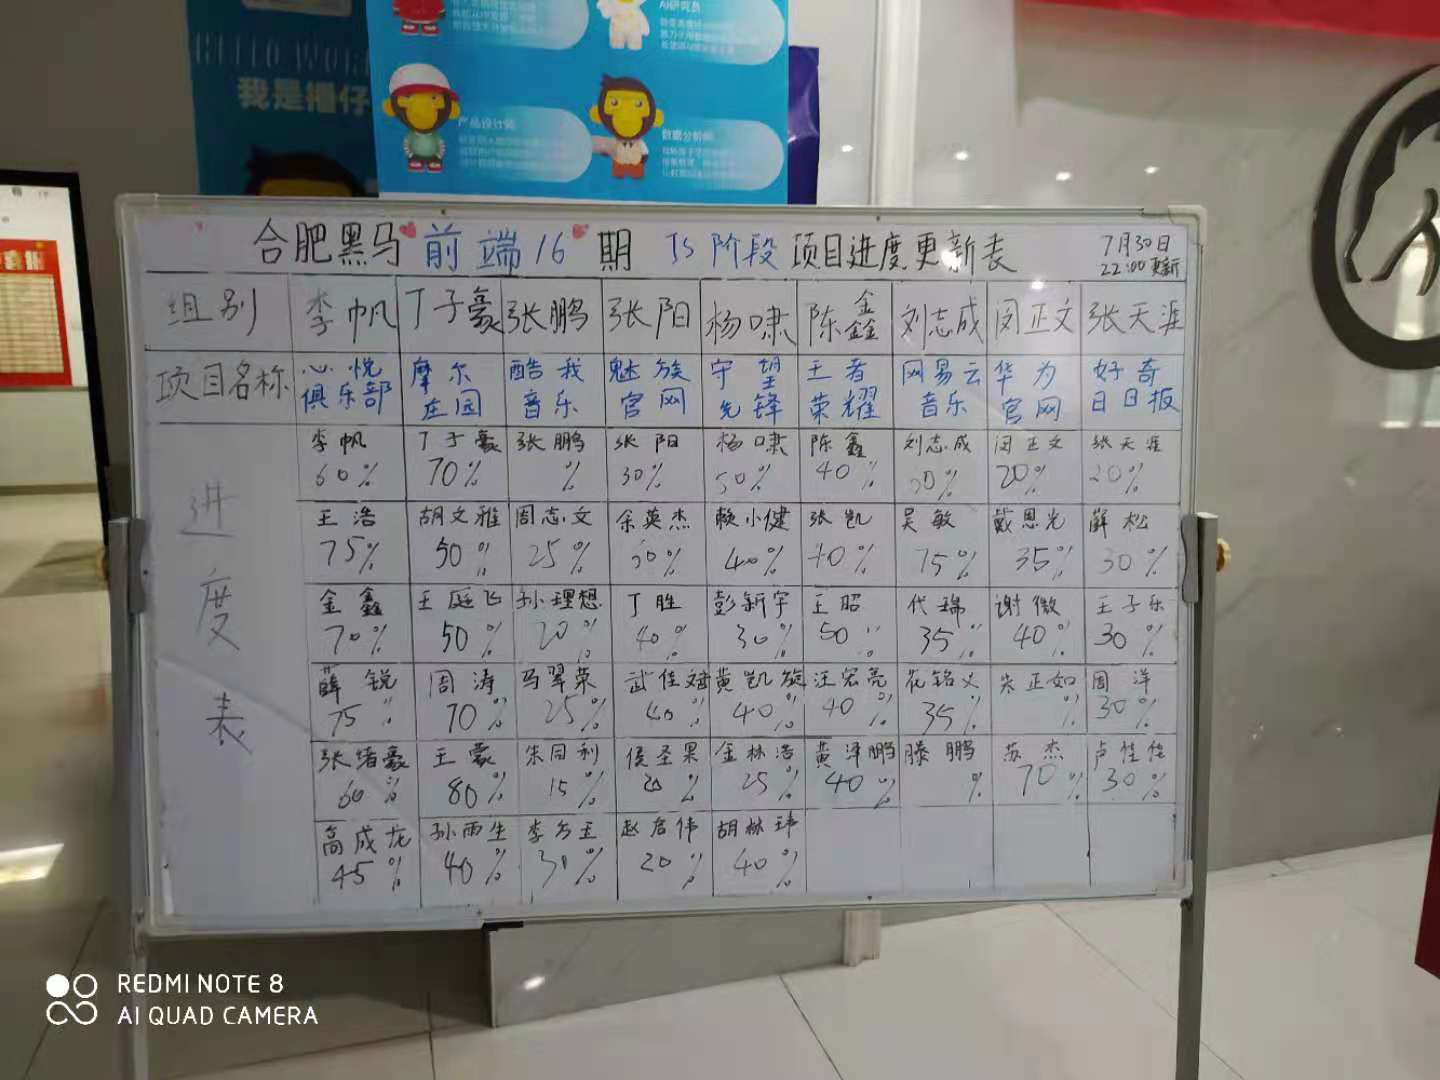 我是播仔
AI研究员
产品设计师
数据分析师
合肥黑马 前端16期 JS阶段 项目进度更新表
7月30日
22:00更新
组别 李帆 丁子豪 张鹏 张阳 杨啸 陈鑫 刘志成 闵正文 张天涯
项目名称 心悦俱乐部 摩尔庄园 酷我音乐 魅族官网 守望先锋 王者荣耀 网易云音乐 华为官网 好奇日报
进度表
李帆 丁子豪 张鹏 张阳 杨啸 陈鑫 刘志成 闵正文 张天涯
60% 70% % 30% 50% 40% 30% 20% 20%
王浩 胡文雅 周志文 余英杰 赖小健 张凯 吴敏 戴恩光 薛松
75% 50% 25% 30% 40% 40% 75% 35% 30%
金鑫 王庭飞 孙理想 丁胜 彭新宇 王昭 代瑞 谢微 王子乐
70% 50% 20% 40% 30% 50% 35% 40% 30%
薛锐 周涛 马翠荣 武佳斌 黄凯旋 汪宏亮 花铭义 朱正如 周洋
75% 70% 25% 40% 40% 40% 35% % 30%
张绪豪 王豪 朱同利 侯圣果 金林浩 黄泽鹏 滕鹏 苏杰 卢佳佳
60% 80% 15% 20% 25% 40% % 70% 30%
高成龙 孙雨生 李方王 赵启伟 胡林玮
45% 40% 30% 20% 40%
REDMI NOTE 8
AI QUAD CAMERA